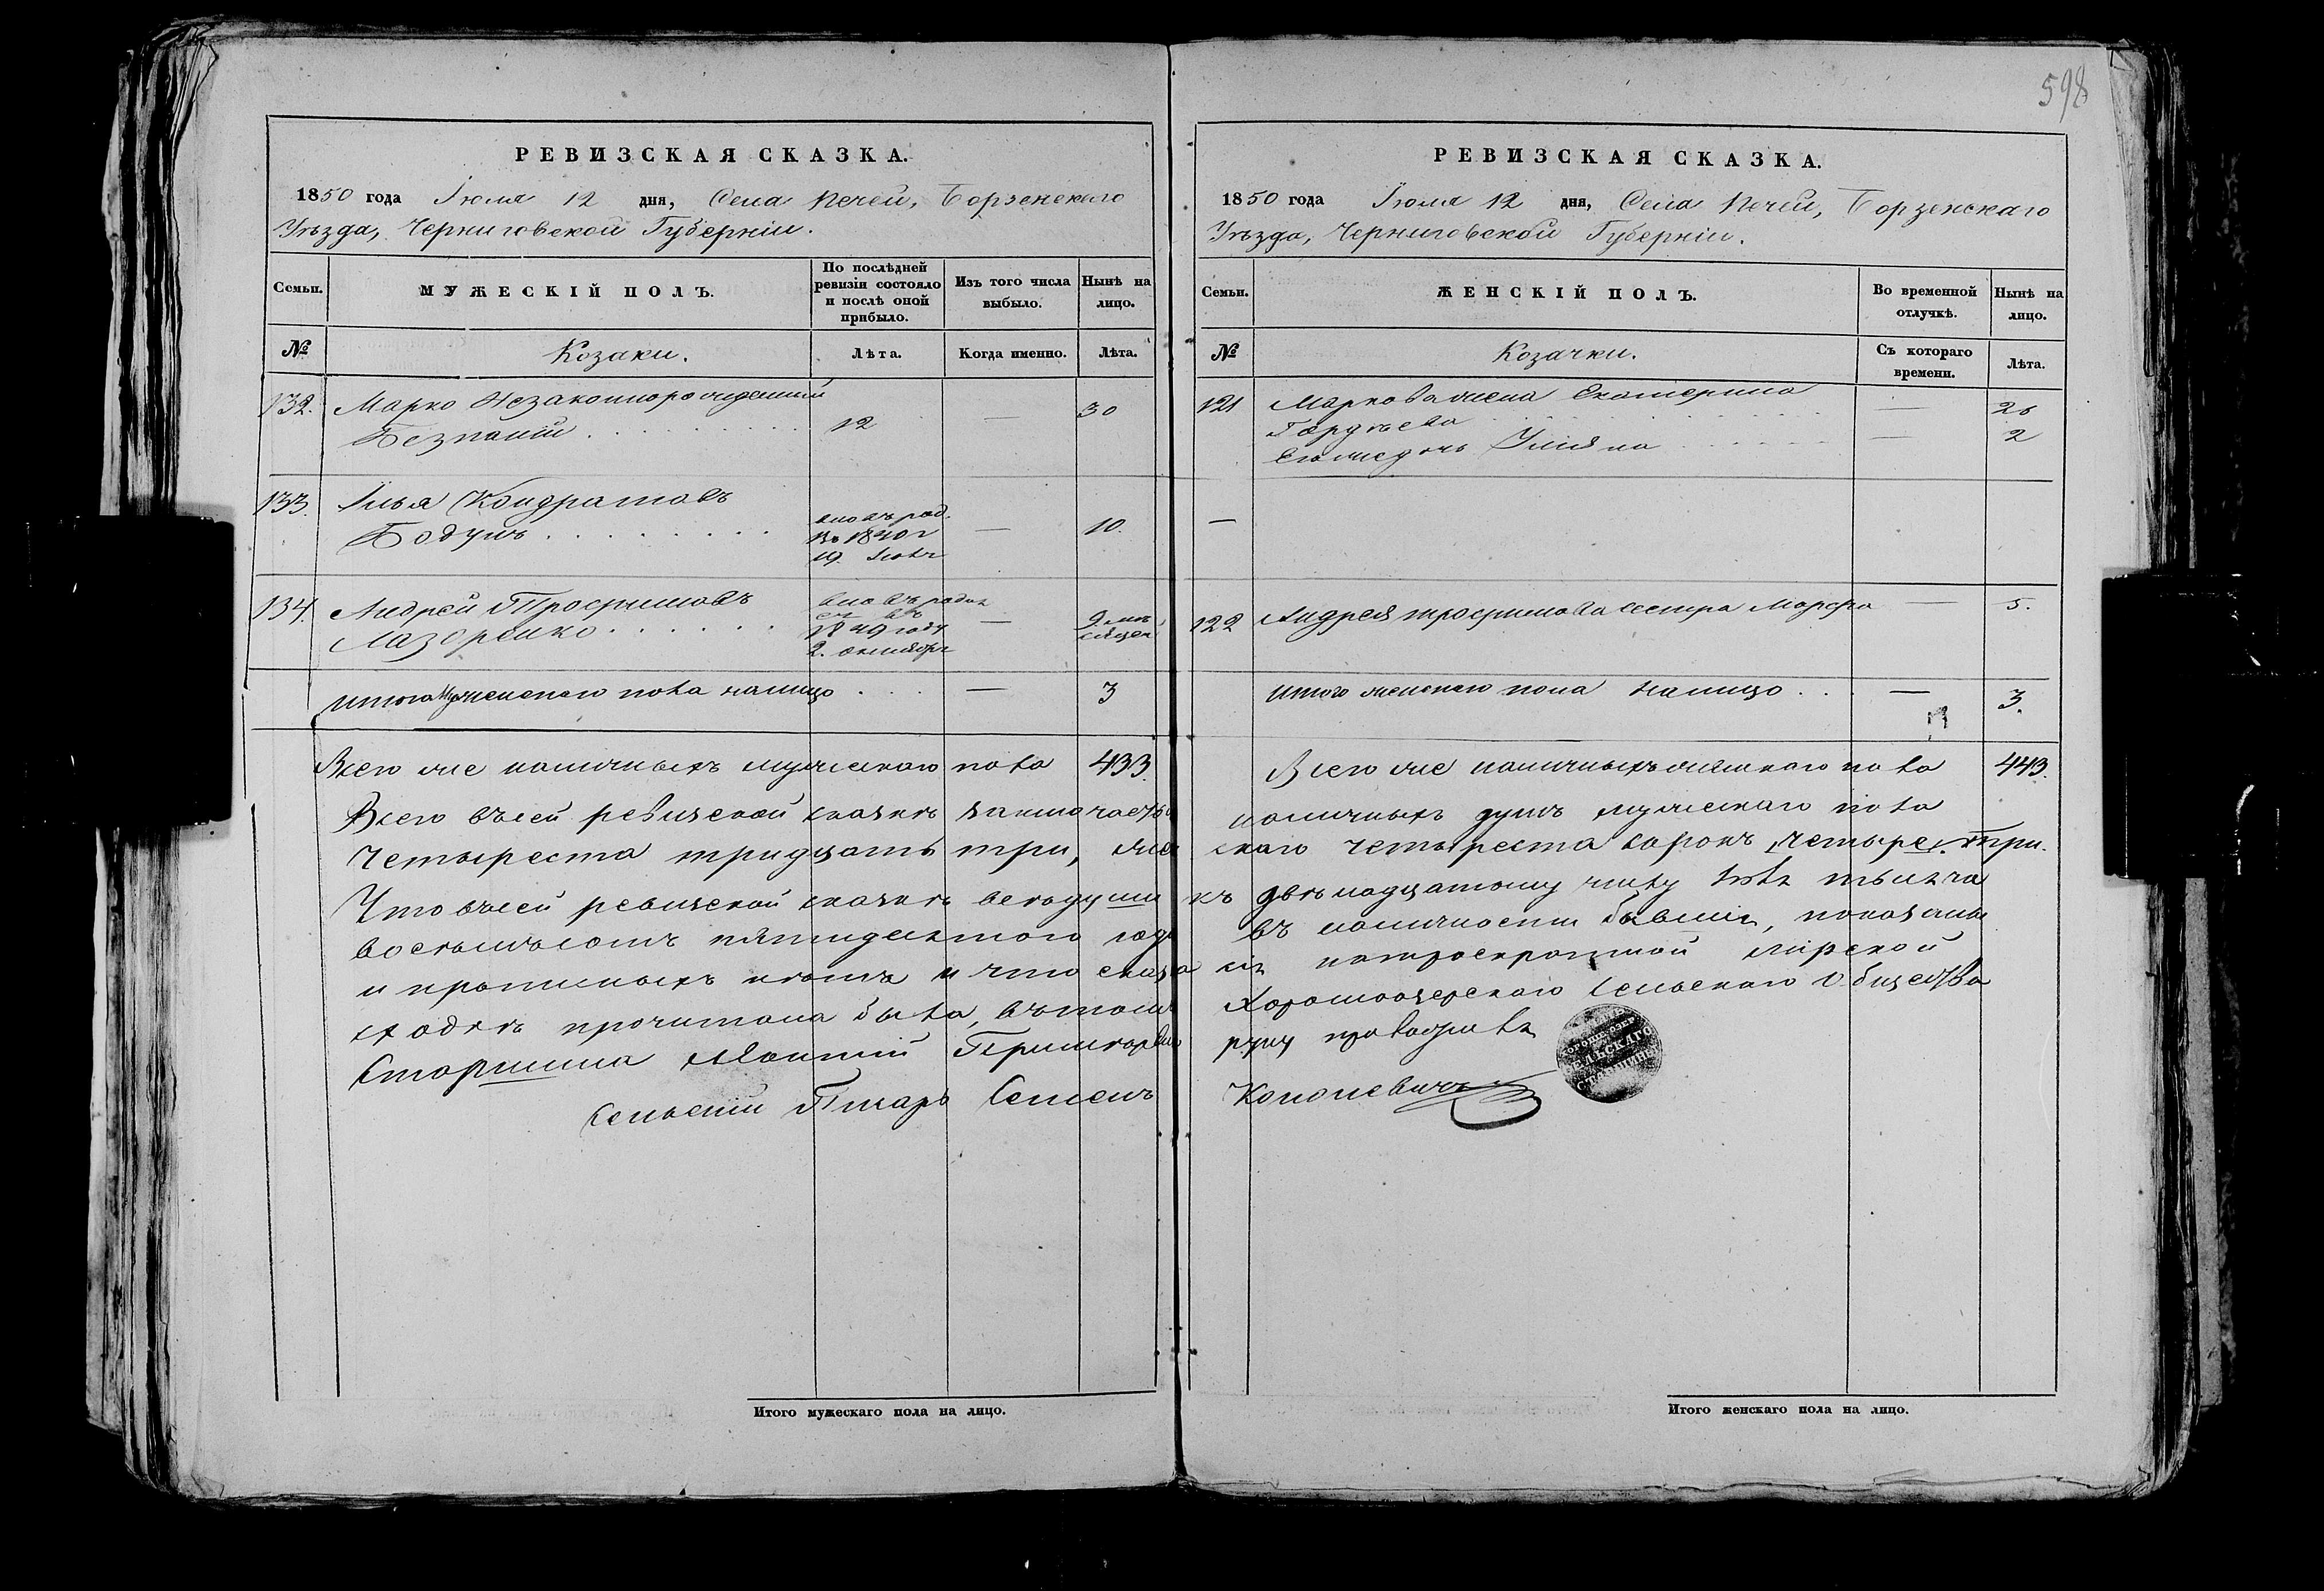 598
РЕВИЗСКАЯ СКАЗКА.
1850 года Іюля 12 дня, Села Печей, Борзенскаго
Уѣзда, Черниговской Губерніи.
Семьи.
МУЖЕСКІЙ ПОЛЪ.
По послѣдней ревизіи состояло и послѣ оной прибыло.
Изъ того числа выбыло.
Нынѣ на лицо.
№
Козаки.
Лѣта.
Когда именно.
Лѣта.
132. Марко Незаконнорожденный
Безпалый 12 — 30
133. Илья Кондратовъ
Бодунъ вновь род. — 10.
въ 1840 г
19
134. Андрей Трофимовъ
Лазоренко вновь родил
ся въ
1849 году — 9 мѣ
сяцей
2. октября
итого мужескаго пола налицо — 3
Всего же наличныхъ мужескаго пола 433.
РЕВИЗСКАЯ СКАЗКА.
1850 года Іюля 12 дня, Села Печей, Борзенскаго
Уѣзда, Черниговской Губерніи.
Семьи.
ЖЕНСКІЙ ПОЛЪ.
Во временной отлучкѣ.
Нынѣ на лицо.
№
Козачки.
Съ котораго времени.
Лѣта.
121 Маркова жена Екатерина
— 26
Его же дочь Уліяна — 2
—
122 Андрея Трофимова сестра Марфа — 5.
итого женскаго пола налицо — 3.
Всего же наличныхъ женскаго пола 443.
Всего въ сей ревизской сказкѣ заключается наличныхъ душъ мужескаго пола
Четыреста тридцать три, женскаго четыреста сорокъ четыре. три.
Что въ сей ревизской сказкѣ всѣ души къ двѣнадцатому числу Іюля тысяча
восемьсотъ пятидесятого года въ наличности бывшіе, показаны
и прописныхъ нѣтъ и что сказка сія на троекратной мірской
сходкѣ прочитана была, въ томъ Хорошоозерскаго Сельскаго Общества
Старшина руку приложилъ
Сельскій Писарь Семенъ Кононевичъ
СЕЛЬСКАГО
СТАРШИНЫ
Итого мужескаго пола на лицо.
Итого женскаго пола на лицо.